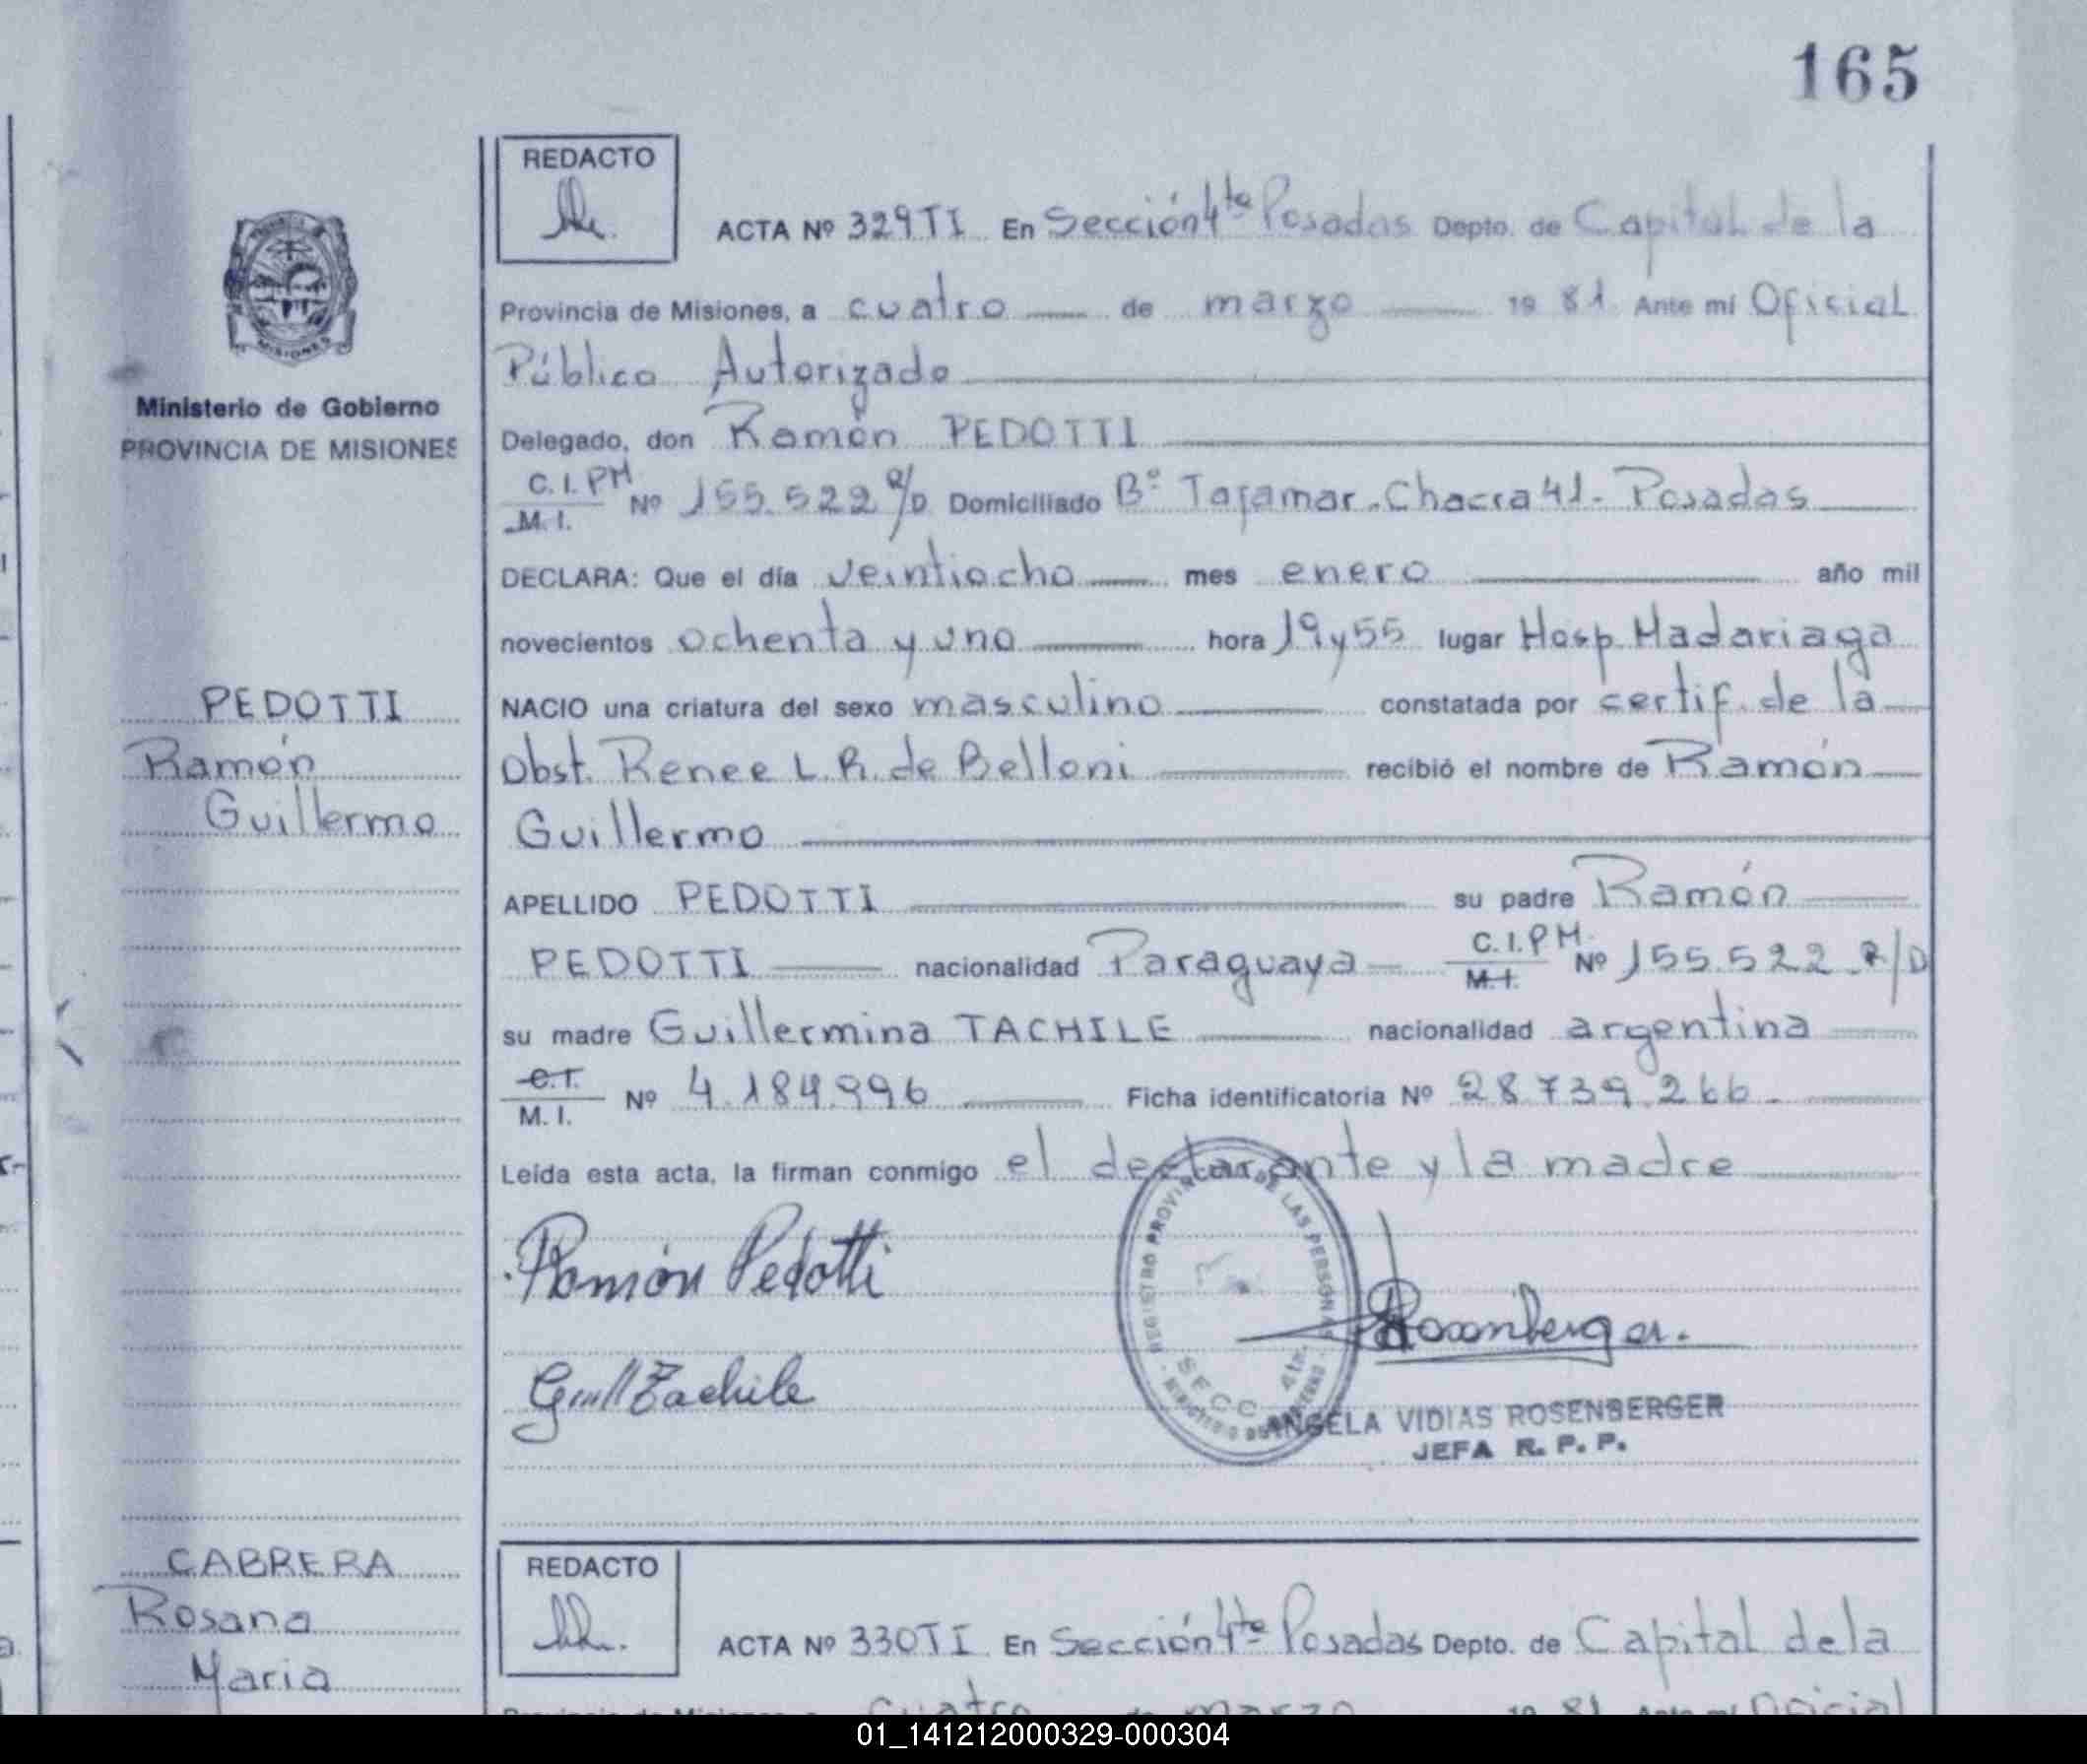 165
REDACTO
ACTA Nº 329 TI En Sección 4ta Posadas Depto. de Capital de la
Provincia de Misiones, a cuatro de marzo 19 81 Ante mí Oficial
Público Autorizado
MISIONES
Ministerio de Gobierno
PROVINCIA DE MISIONES
Delegado, don Ramón PEDOTTI
C.I.PM Nº 155.522 R/D Domiciliado Bº Tajamar-Chacra 41-Posadas
M.I.
DECLARA: Que el día veintiocho mes enero año mil
novecientos ochenta y uno hora 19 y 55 lugar Hosp. Madariaga
PEDOTTI
Ramón
Guillermo
NACIO una criatura del sexo masculino constatada por certif. de la
Obst. Renee L.R. de Belloni recibió el nombre de Ramón
Guillermo
APELLIDO PEDOTTI su padre Ramón
PEDOTTI nacionalidad Paraguaya C.I.PM Nº 155.522 R/D
M.I.
su madre Guillermina TACHILE nacionalidad argentina
C.I.
M.I. Nº 4.184.996 Ficha identificatoria Nº 28.739.266.
Leída esta acta, la firman conmigo el declarante y la madre
Ramón Pedotti
Guill Tachile
REGISTRO PROVINCIAL DE LAS PERSONAS
SECC. 4ta.
Rosenberger
ANGELA VIDIAS ROSENBERGER
JEFA R. P. P.
CABRERA
Rosana
Maria
REDACTO
ACTA Nº 330 TI En Sección 4ta Posadas Depto. de Capital de la
Provincia de Misiones, a cuatro de marzo 19 81 Ante mí Oficial
01_141212000329-000304